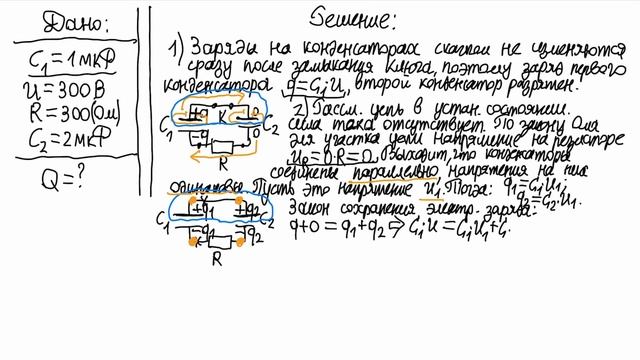 Дано:
C₁ = 1 мкФ
U = 300 В
R = 300 (Ом)
C₂ = 2 мкФ
Q = ?
Решение:
1) Заряды на конденсаторах скачком не изменяются
сразу после замыкания ключа, поэтому заряд первого
конденсатора q = C₁U, второй конденсатор разряжен.
К
+q 0
C₁ C₂
-q 0
R
2) Рассм. цепь в устан. состоянии.
Сила тока отсутствует. По закону Ома
для участка цепи напряжение на резисторе
U₀ = 0·R = 0. Выходит, что конденсаторы
соединены параллельно напряжения на них
одинаковы. Пусть это напряжение U₁. Тогда: q₁ = C₁U₁;
q₂ = C₂·U₁.
Закон сохранения электр. заряда:
q+0 = q₁+q₂ ⇒ C₁U = C₁U₁+C
+q₁ +q₂
C₁ C₂
-q₁ -q₂
R